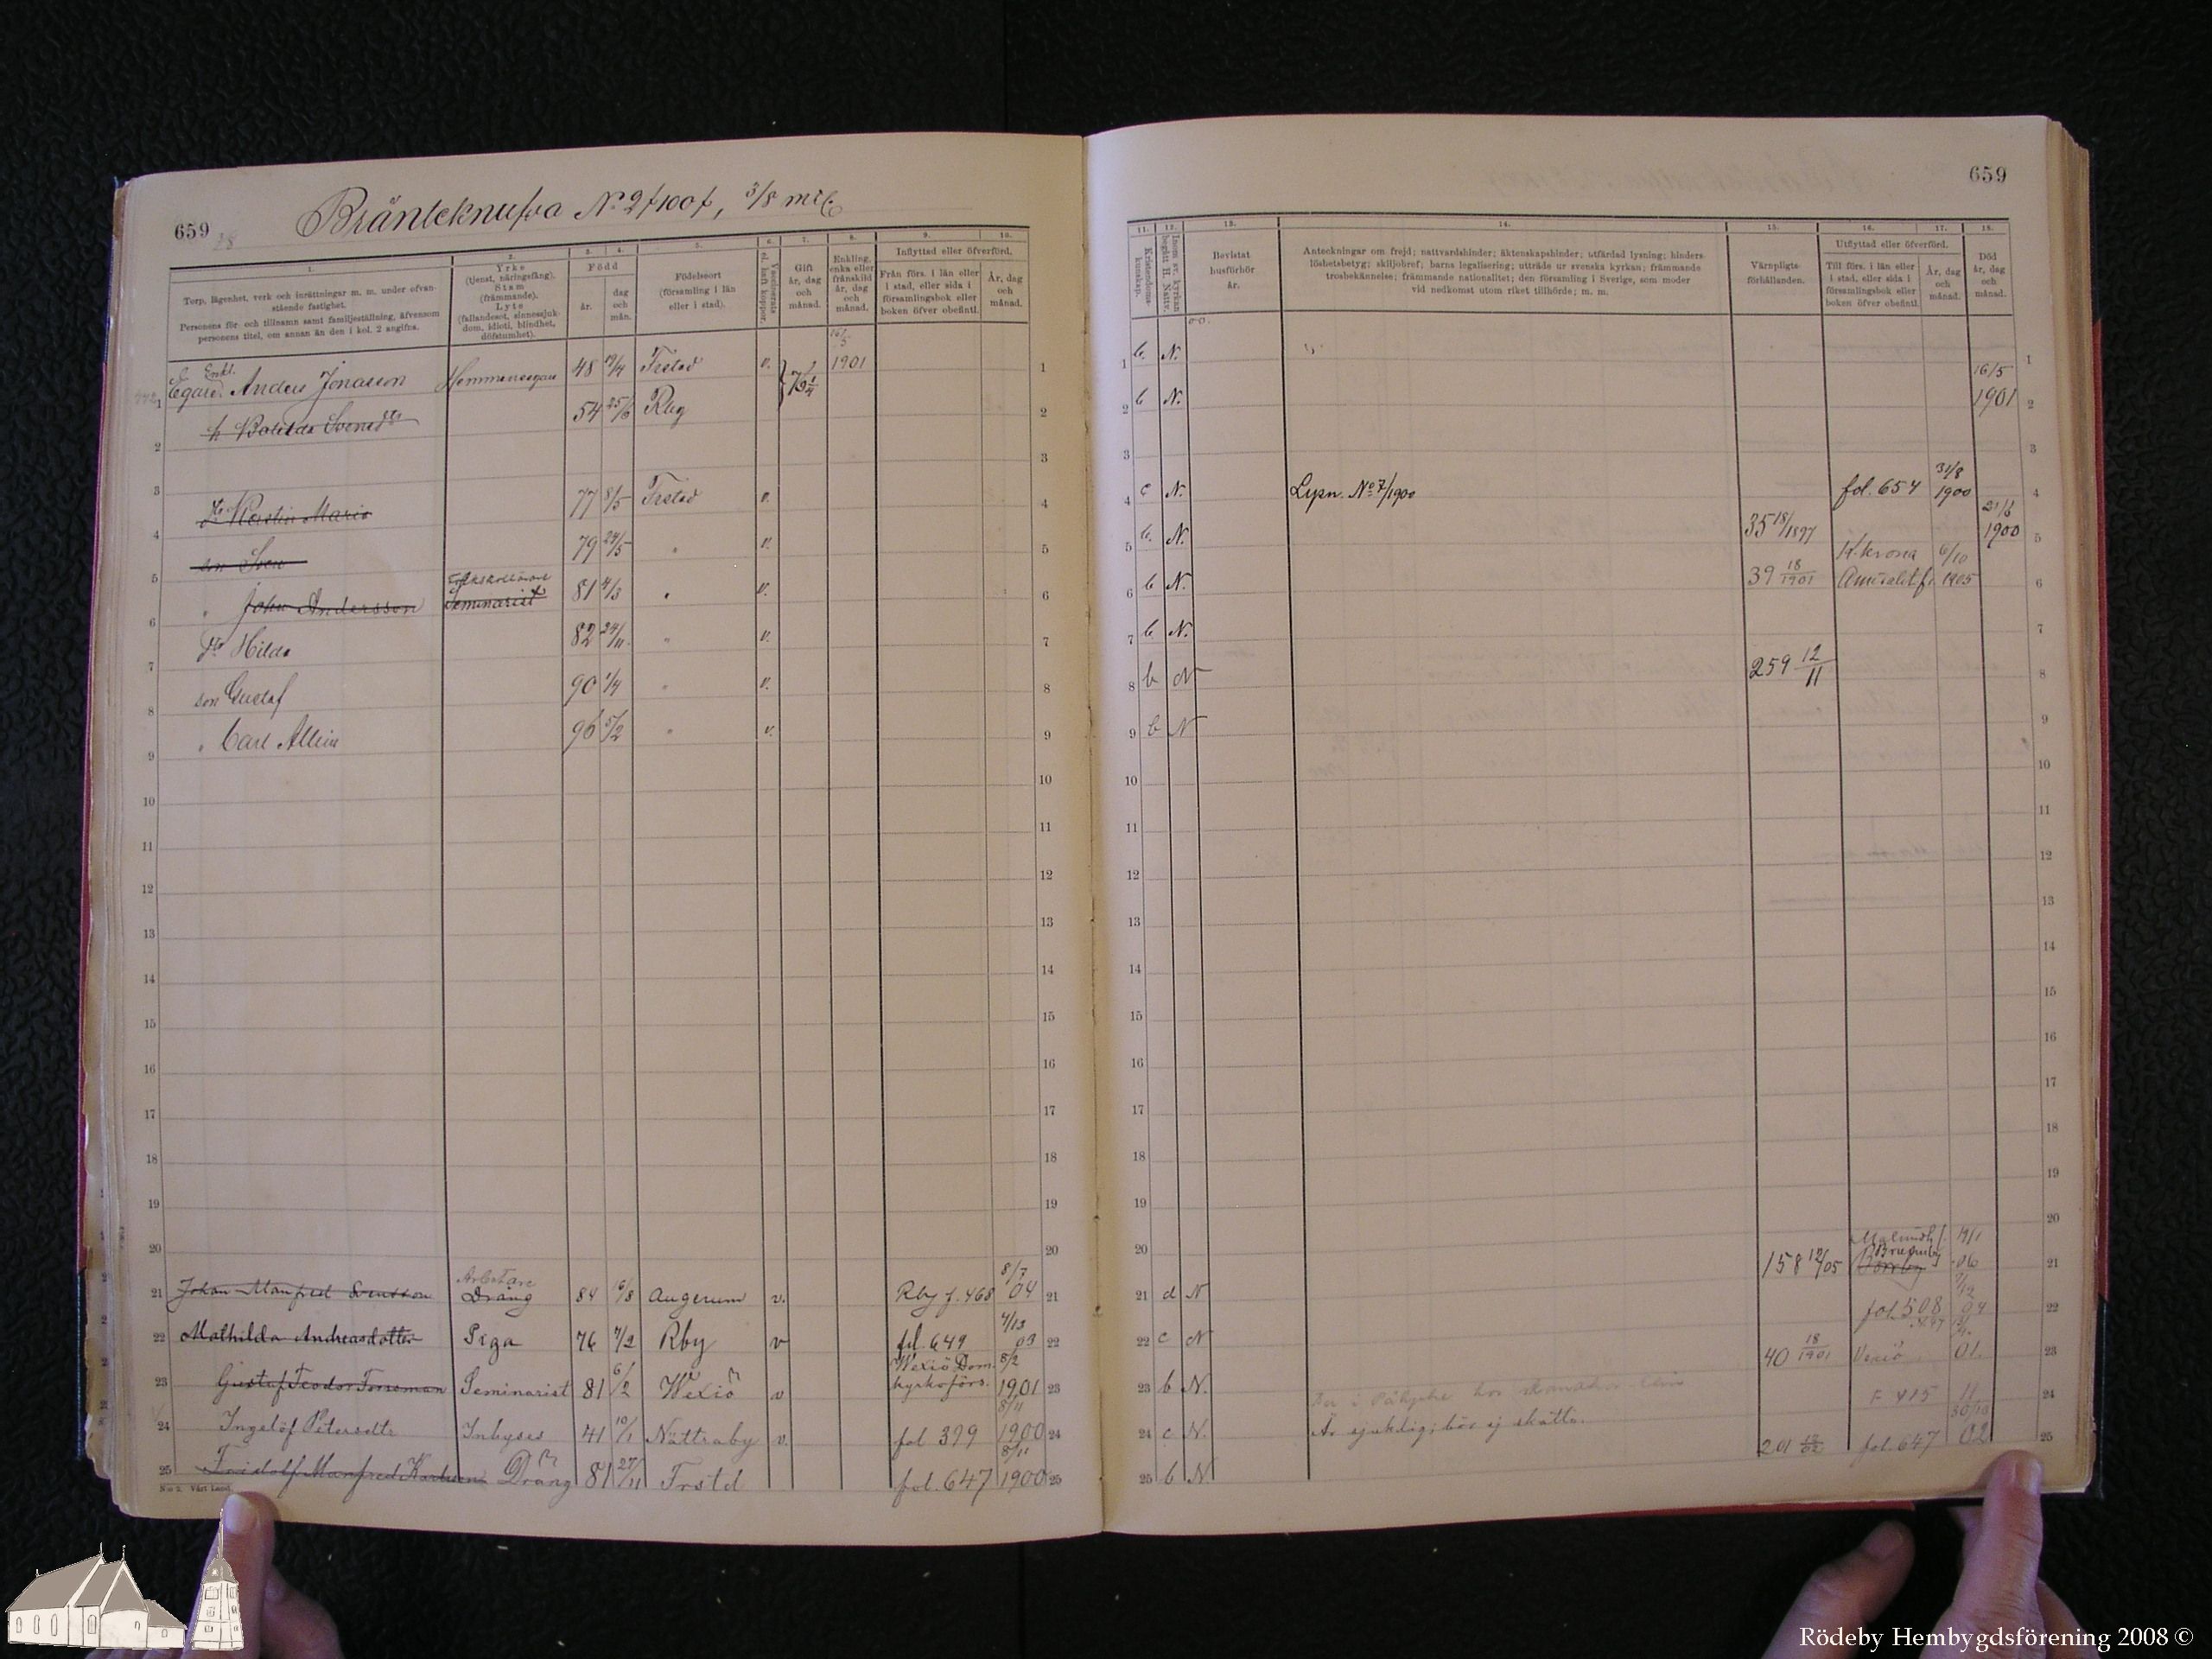 659
Bränteknufva No 2 f 100 f, 3/8 mil
1.
2.
3.
4.
5.
6.
7.
8.
9.
10.
Torp, lägenhet, verk och inrättningar m. m. under ofvanstående fastighet.
Personens för- och tillnamn samt familjeställning, äfvensom personens titel, om annan än den i kol. 2 angifna.
Yrke
(tjenst, näringsfång).
Stam
(främmande).
Lyte
(fallandesot, sinnessjukdom, idioti, blindhet, döfstumhet).
Född
år.
dag och mån.
Födelseort
(församling i län eller i stad).
Vaccinerats el. haft koppor.
Gift
år, dag och månad.
Enkling, enka eller frånskild år, dag och månad.
Inflyttad eller öfverförd.
Från förs. i län eller i stad, eller sida i församlingsbok eller boken öfver obefintl.
År, dag och månad.
1 Egare Enkl. Anders Jonasson Hemmansegare 48 19/4 Frstad v. 16/5 1901
2 h Botilda Svensdtr 54 25/6 Rby
4 dtr Kerstin Maria 77 8/5 Frstad v.
5 son Sven 79 24/5 " v.
6 " John Andersson Folkskollärare Seminarist 81 4/3 " v.
7 dtr Hilda 82 24/11 " v.
8 son Gustaf 90 1/4 " v.
9 " Carl Albin 96 5/2 " v.
21 Johan Manfred Svensson Arbetare Dräng 84 16/8 Augerum v. Rby f. 468 8/7 04
22 Mathilda Andreasdotter Piga 76 7/2 Rby v fol. 649 03
23 Gustaf Teodor Forsman Seminarist 81 6/2 Wexiö v Wexiö Dom kyrkoförs. 8/2 1901
24 Ingelöf Petersdtr Inhyses 41 10/1 Nättraby v. fol 399 8/11 1900
25 Fridolf Manfred Karlsson Dräng 81 27/11 Frstd fol. 647 8/11 1900
659
11.
12.
13.
14.
15.
16.
17.
18.
Kristendomskunskap.
Inom sv. kyrkan begått H. Nattv.
Bevistat husförhör år.
Anteckningar om frejd; nattvardshinder; äktenskapshinder; utfärdad lysning; hinderslöshetsbetyg; skiljobref; barns legalisering; utträde ur svenska kyrkan; främmande trosbekännelse; främmande nationalitet; den församling i Sverige, som moder vid nedkomst utom riket tillhörde; m. m.
Värnpligtsförhållanden.
Utflyttad eller öfverförd.
Till förs. i län eller i stad, eller sida i församlingsbok eller boken öfver obefintl.
År, dag och månad.
Död
år, dag och månad.
1 b. N.
2 b N. 16/5 1901
4 c N. Lysn. No 7/1900 fol. 654 31/8 1900
5 b. N. 35 18/1897 1900
6 b N. 39 18/1901 K.krona Amiralitetsf. 6/10 1905
7 b N.
8 b N 259 12/11
9 b N
21 d N 158 12/05
22 c N fol. 508
23 b N. 40 18/1901 Vexiö 01.
24 c N. Är sjuklig; bör ej skatta. F 415
25 b N. fol. 647 02
Rödeby Hembygdsförening 2008 ©